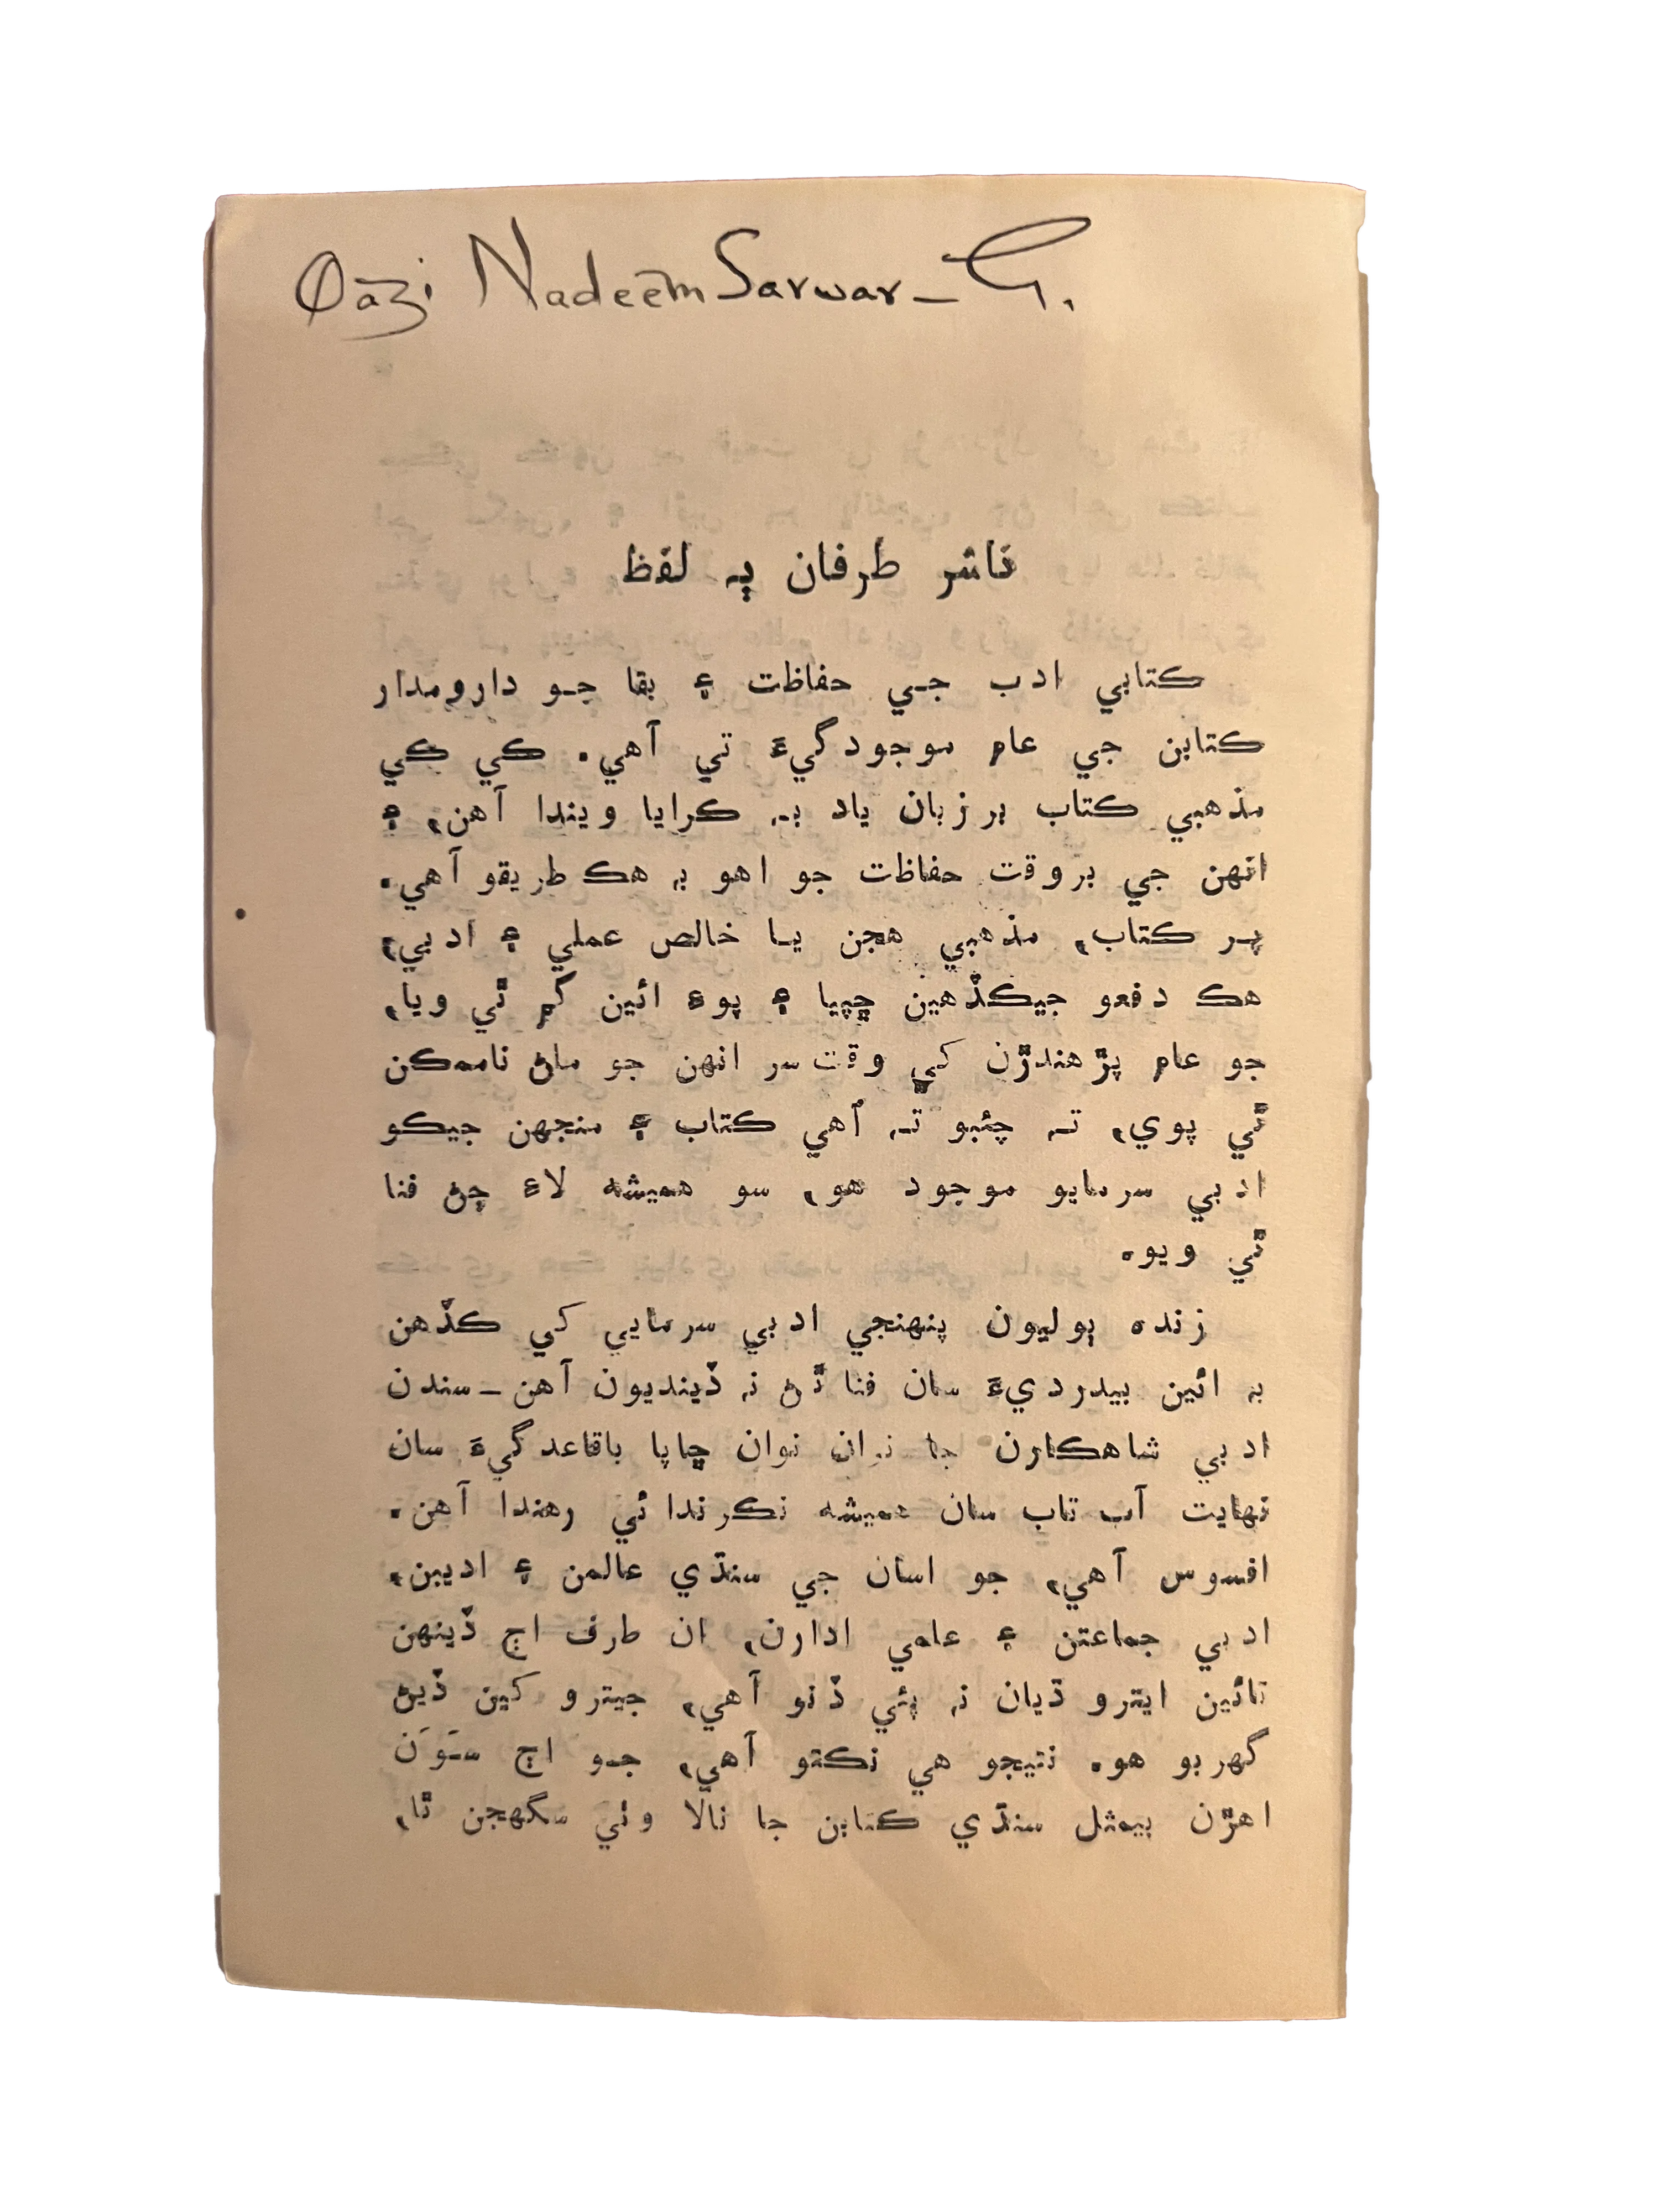 Qazi Nadeem Sarwar - G.
ناشر طرفان ٻه لفظ
ڪتابي ادب جي حفاظت ۽ بقا جو دارومدار
ڪتابن جي عام موجودگيءَ تي آهي. ڪي ڪي
مذهبي ڪتاب برزبان ياد به ڪرايا ويندا آهن، ۽
انهن جي بروقت حفاظت جو اهو به هڪ طريقو آهي.
پر ڪتاب، مذهبي هجن يا خالص عملي ۽ ادبي،
هڪ دفعو جيڪڏهين ڇپيا ۽ پوءِ ائين گم ٿي ويا،
جو عام پڙهندڙن کي وقت سر انهن جو ملڻ ناممڪن
ٿي پوي، ته چئبو ته اُهي ڪتاب ۽ منجهن جيڪو
ادبي سرمايو موجود هو، سو هميشه لاءِ ڄڻ فنا
ٿي ويو.
زنده ٻوليون پنهنجي ادبي سرمايي کي ڪڏهن
به ائين بيدرديءَ سان فنا ٿڻ نه ڏينديون آهن ــ سندن
ادبي شاهڪارن جا نوان نوان ڇاپا باقاعدگيءَ سان
نهايت آب تاب سان هميشه نڪرندا ئي رهندا آهن.
افسوس آهي، جو اسان جي سنڌي عالمن ۽ اديبن،
ادبي جماعتن ۽ علمي ادارن، ان طرف اڄ ڏينهن
تائين ايترو ڌيان نه پئي ڏنو آهي، جيترو کين ڏيڻ
گهربو هو. نتيجو هي نڪتو آهي، جو اڄ سَوَن
اهڙن بيمثل سنڌي ڪتابن جا نالا وٺي سگهجن ٿا،